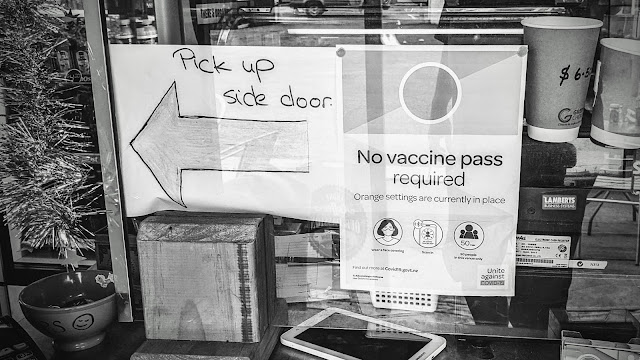 Pick up
side door.
No vaccine pass
required
Orange settings are currently in place
wear a face covering
50m²
Find out more at Covid19.govt.nz
Unite
against
COVID-19
$6.5
LAMBERTS
BUSINESS SYSTEMS